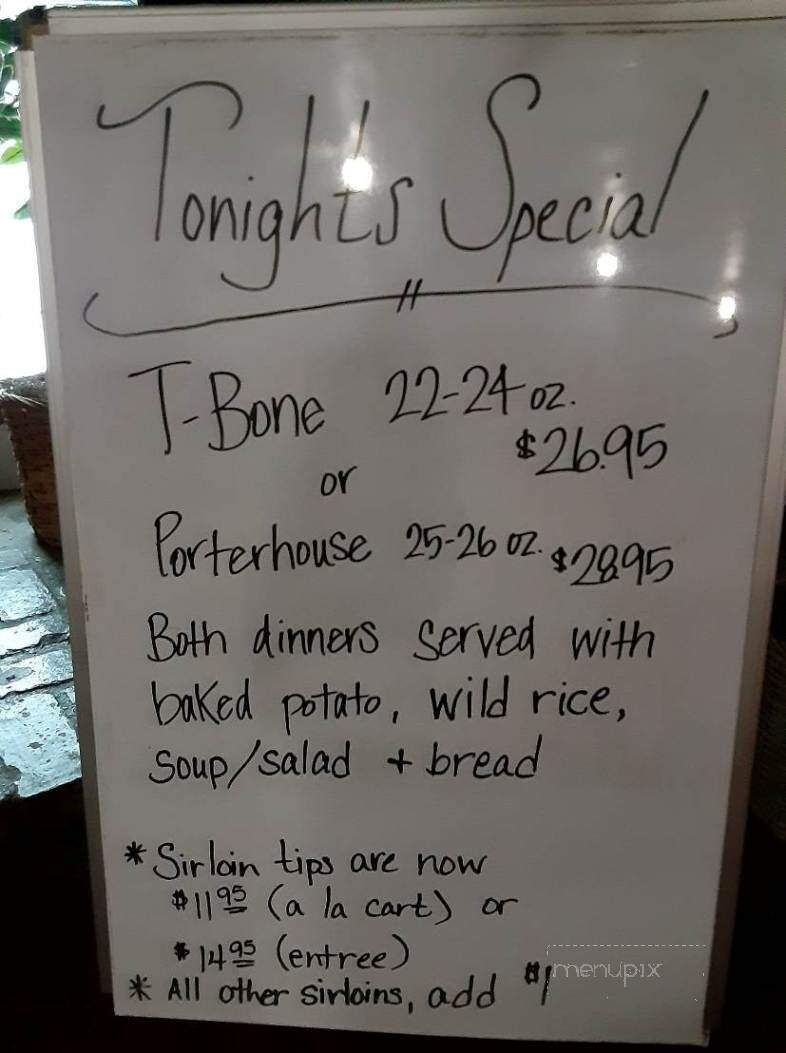 Tonights Special
T-Bone 22-24 oz.
$26.95
or
Porterhouse 25-26 oz. $28.95
Both dinners served with
baked potato, wild rice,
soup/salad + bread
* Sirloin tips are now
$11.95 (a la cart) or
$14.95 (entree)
* All other sirloins, add $1
menupix